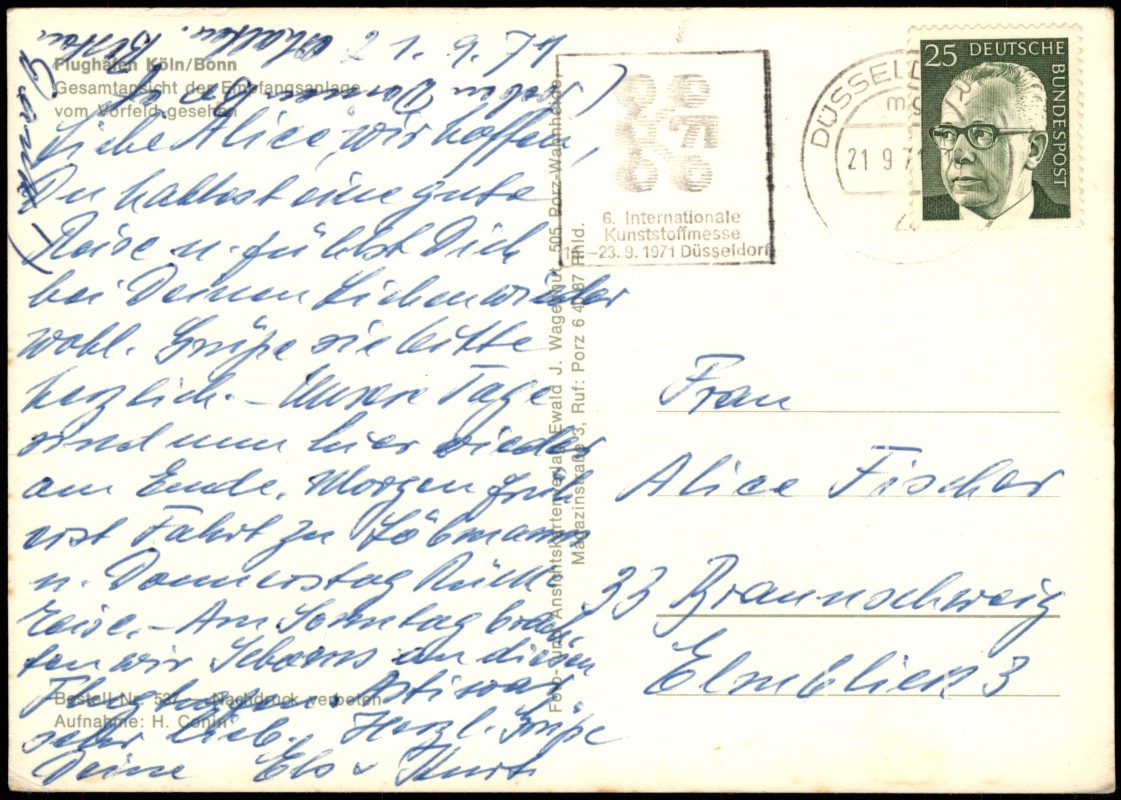 Flughafen Köln/Bonn
Gesamtansicht der Empfangsanlage
vom Vorfeld gesehen
Liebe Alice, wir hoffen,
Du hattest eine gute
Reise u. fühlst Dich
bei Deinen Lieben wieder
wohl. Grüße sie bitte
herzlich. – Unsere Tage
sind nun hier wieder
am Ende. Morgen früh
erst Fahrt zu Löbmanns
u. Donnerstag Rück-
reise. – Am Sonntag brach-
ten wir Scherers an diesen
Flughafen. war
sehr lieb. Herzl. Grüße
Deine Els u Kurt
Bestell-Nr. 537 – Nachdruck verboten
Aufnahme: H. Conin
Foto- und Ansichtskartenverlag Ewald J. Wagenhut, 505 Porz-Wahnheide,
Magazinstraße 3, Ruf: Porz 6 41 87 Rhld.
'71
6. Internationale
Kunststoffmesse
–23.9.1971 Düsseldorf
DÜSSELD
21 9 71
25 DEUTSCHE
BUNDESPOST
Frau
Alice Fischer
33 Braunschweig
Elmblick 3